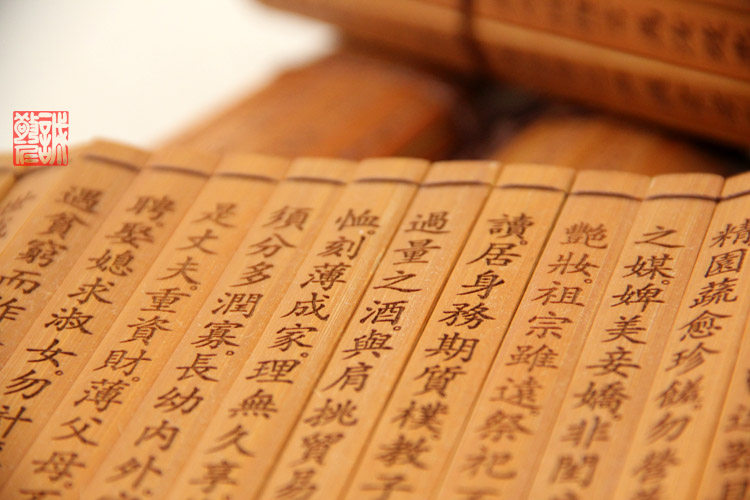 精園蔬愈珍饈。勿營
之媒。婢美妾嬌。非閨
艷妝。祖宗雖遠。祭祀
讀。居身務期質樸。教子
過量之酒。與肩挑貿易
恤。刻薄成家。理無久享
須分多潤寡。長幼內外
是丈夫。重資財。薄父母。
聘。娶媳求淑女。勿計
遇貧窮而作